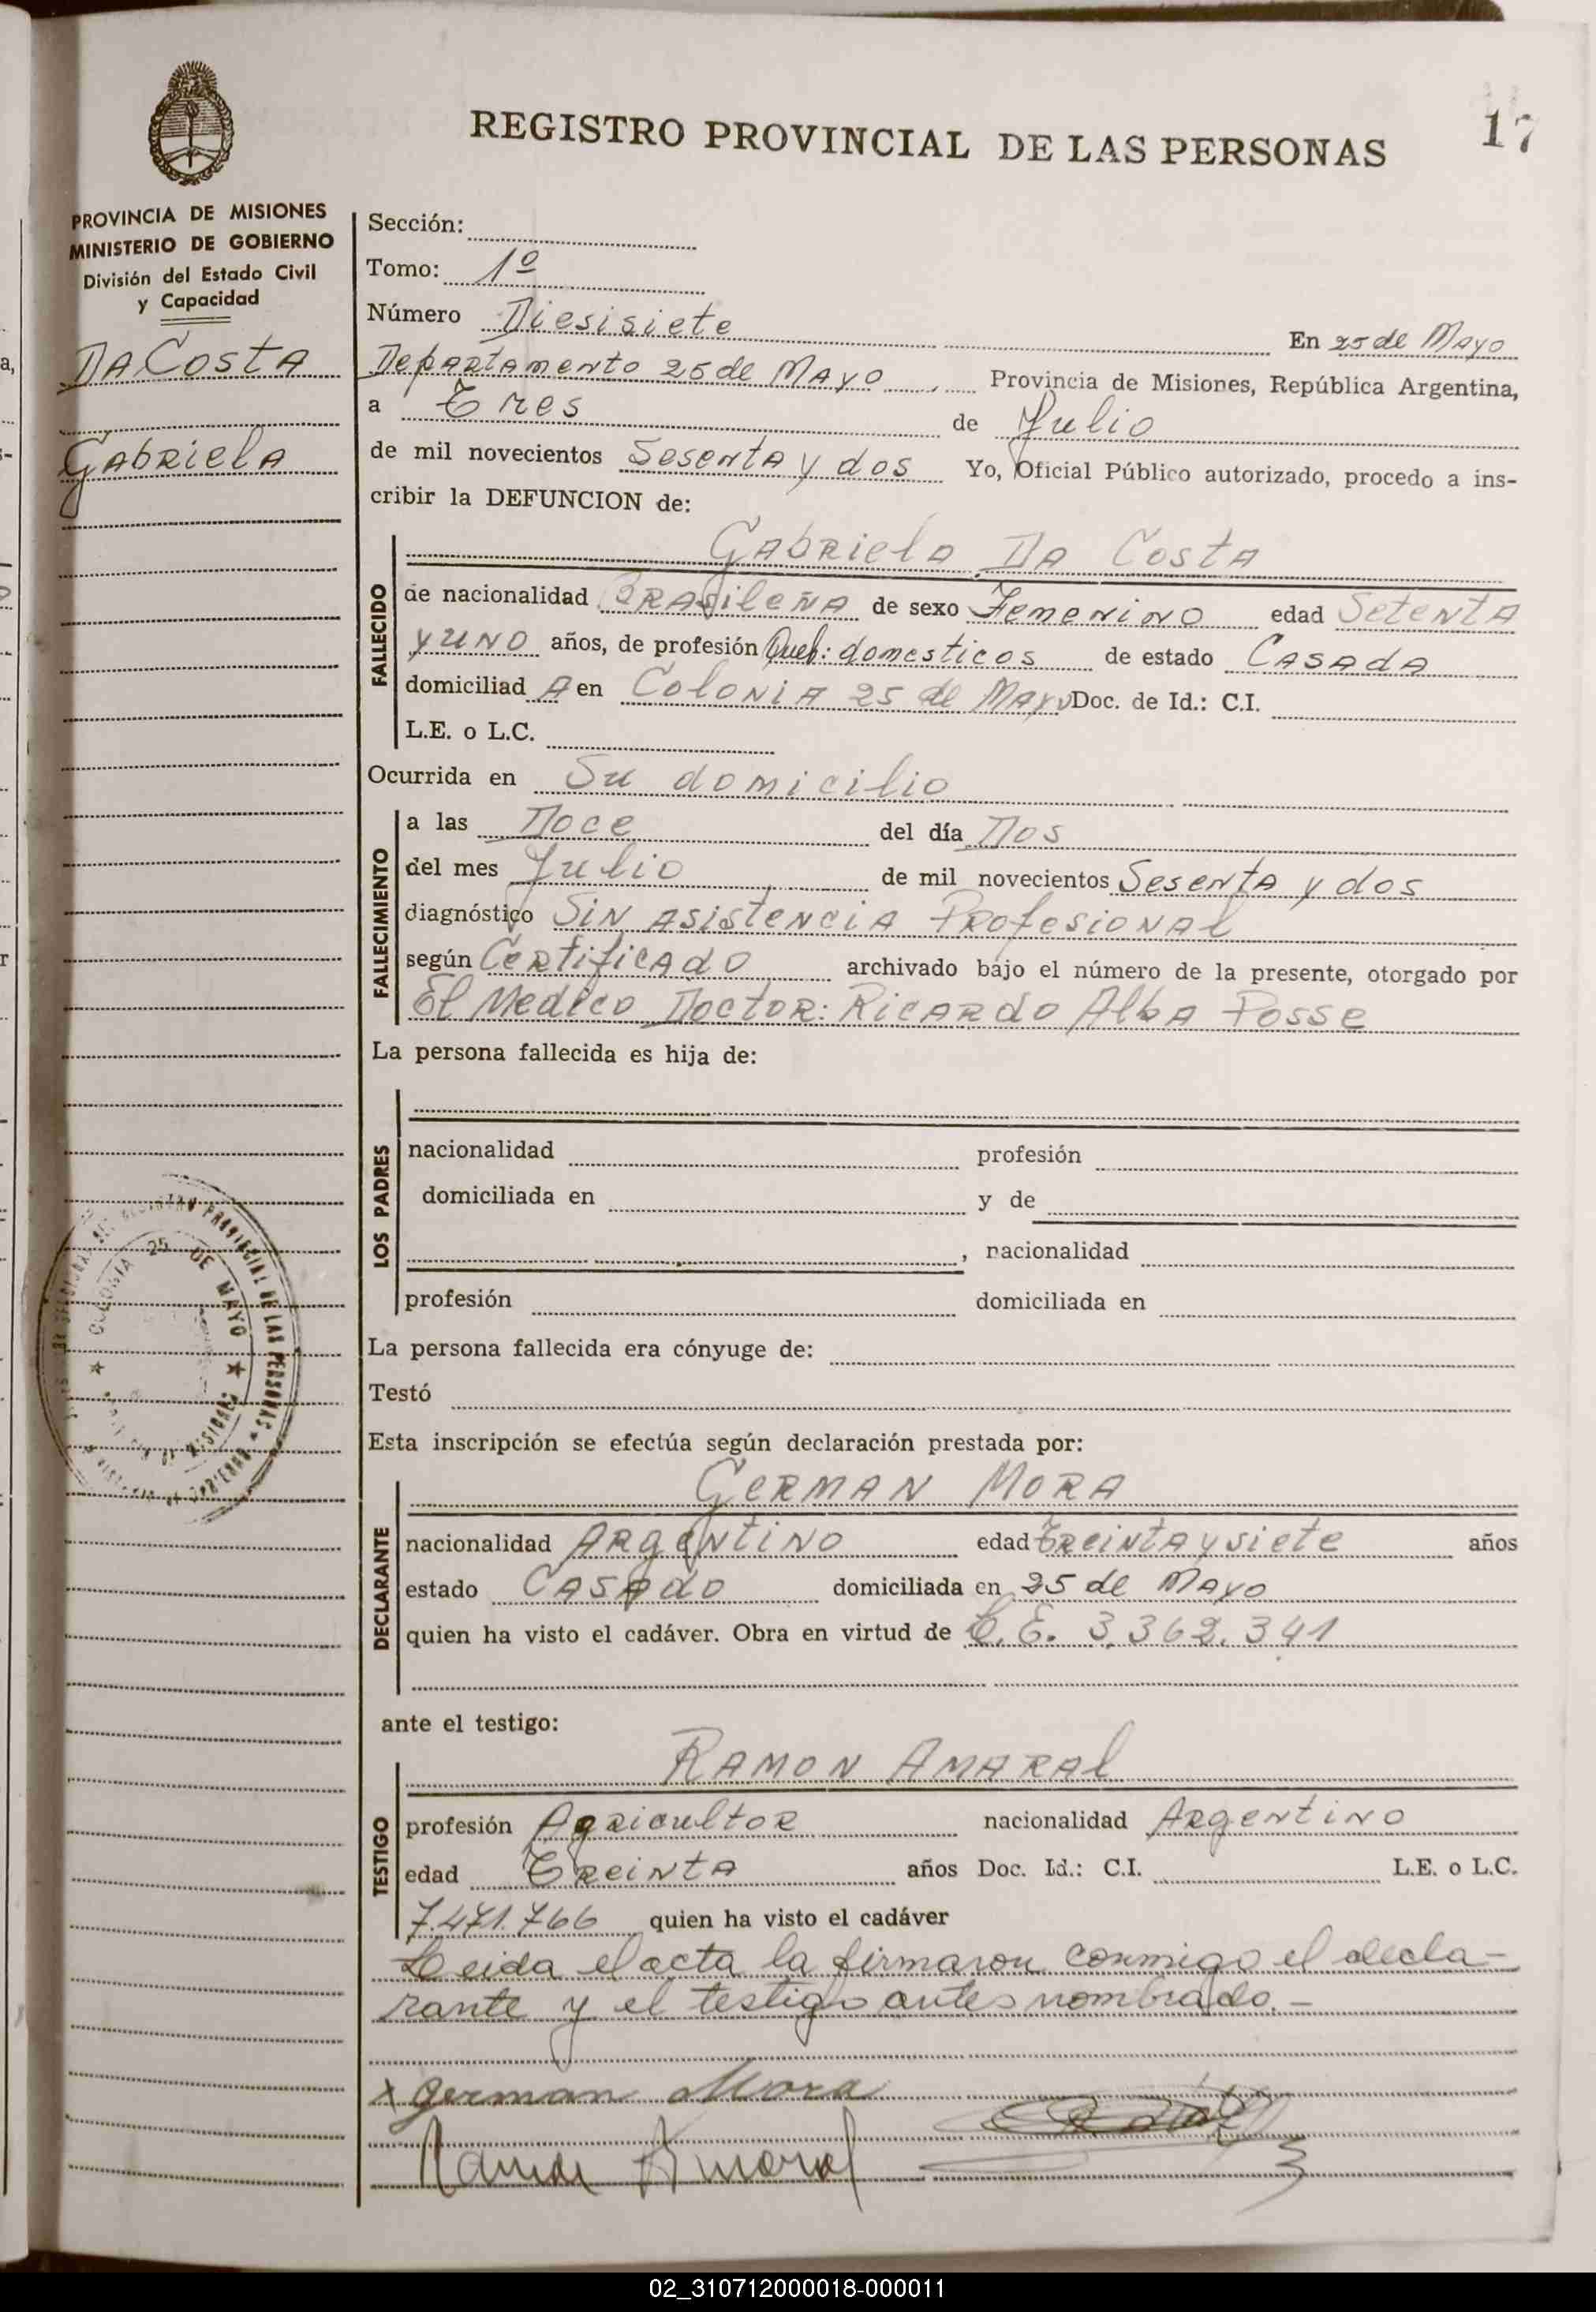 17
REGISTRO PROVINCIAL DE LAS PERSONAS
PROVINCIA DE MISIONES
MINISTERIO DE GOBIERNO
División del Estado Civil
y Capacidad
Da Costa
Gabriela
Sección:
Tomo: 1º
Número Diesisiete En 25 de Mayo
Departamento 25 de Mayo, Provincia de Misiones, República Argentina,
a Tres de Julio
de mil novecientos Sesenta y dos Yo, Oficial Público autorizado, procedo a ins-
cribir la DEFUNCION de:
FALLECIDO
Gabriela Da Costa
de nacionalidad Brasileña de sexo Femenino edad Setenta
y uno años, de profesión Queh: domesticos de estado Casada
domiciliad a en Colonia 25 de Mayo Doc. de Id.: C.I.
L.E. o L.C.
Ocurrida en Su domicilio
FALLECIMIENTO
a las Doce del día Dos
del mes Julio de mil novecientos Sesenta y dos
diagnóstico Sin asistencia Profesional
según Certificado archivado bajo el número de la presente, otorgado por
El Medico Doctor: Ricardo Alba Posse
La persona fallecida es hija de:
LOS PADRES
nacionalidad profesión
domiciliada en y de
, nacionalidad
profesión domiciliada en
La persona fallecida era cónyuge de:
Testó
Esta inscripción se efectúa según declaración prestada por:
DECLARANTE
German Mora
nacionalidad Argentino edad Treinta y siete años
estado Casado domiciliada en 25 de Mayo
quien ha visto el cadáver. Obra en virtud de L.E. 3.362.341
ante el testigo:
TESTIGO
Ramon Amaral
profesión Agricultor nacionalidad Argentino
edad Treinta años Doc. Id.: C.I. L.E. o L.C.
7.471.766 quien ha visto el cadáver
Leida el acta la firmaron conmigo el decla-
rante y el testigo antes nombrado.-
x german Mora
Ramon Amaral
REGISTRO PROVINCIAL DE LAS PERSONAS
COLONIA 25 DE MAYO
02_310712000018-000011